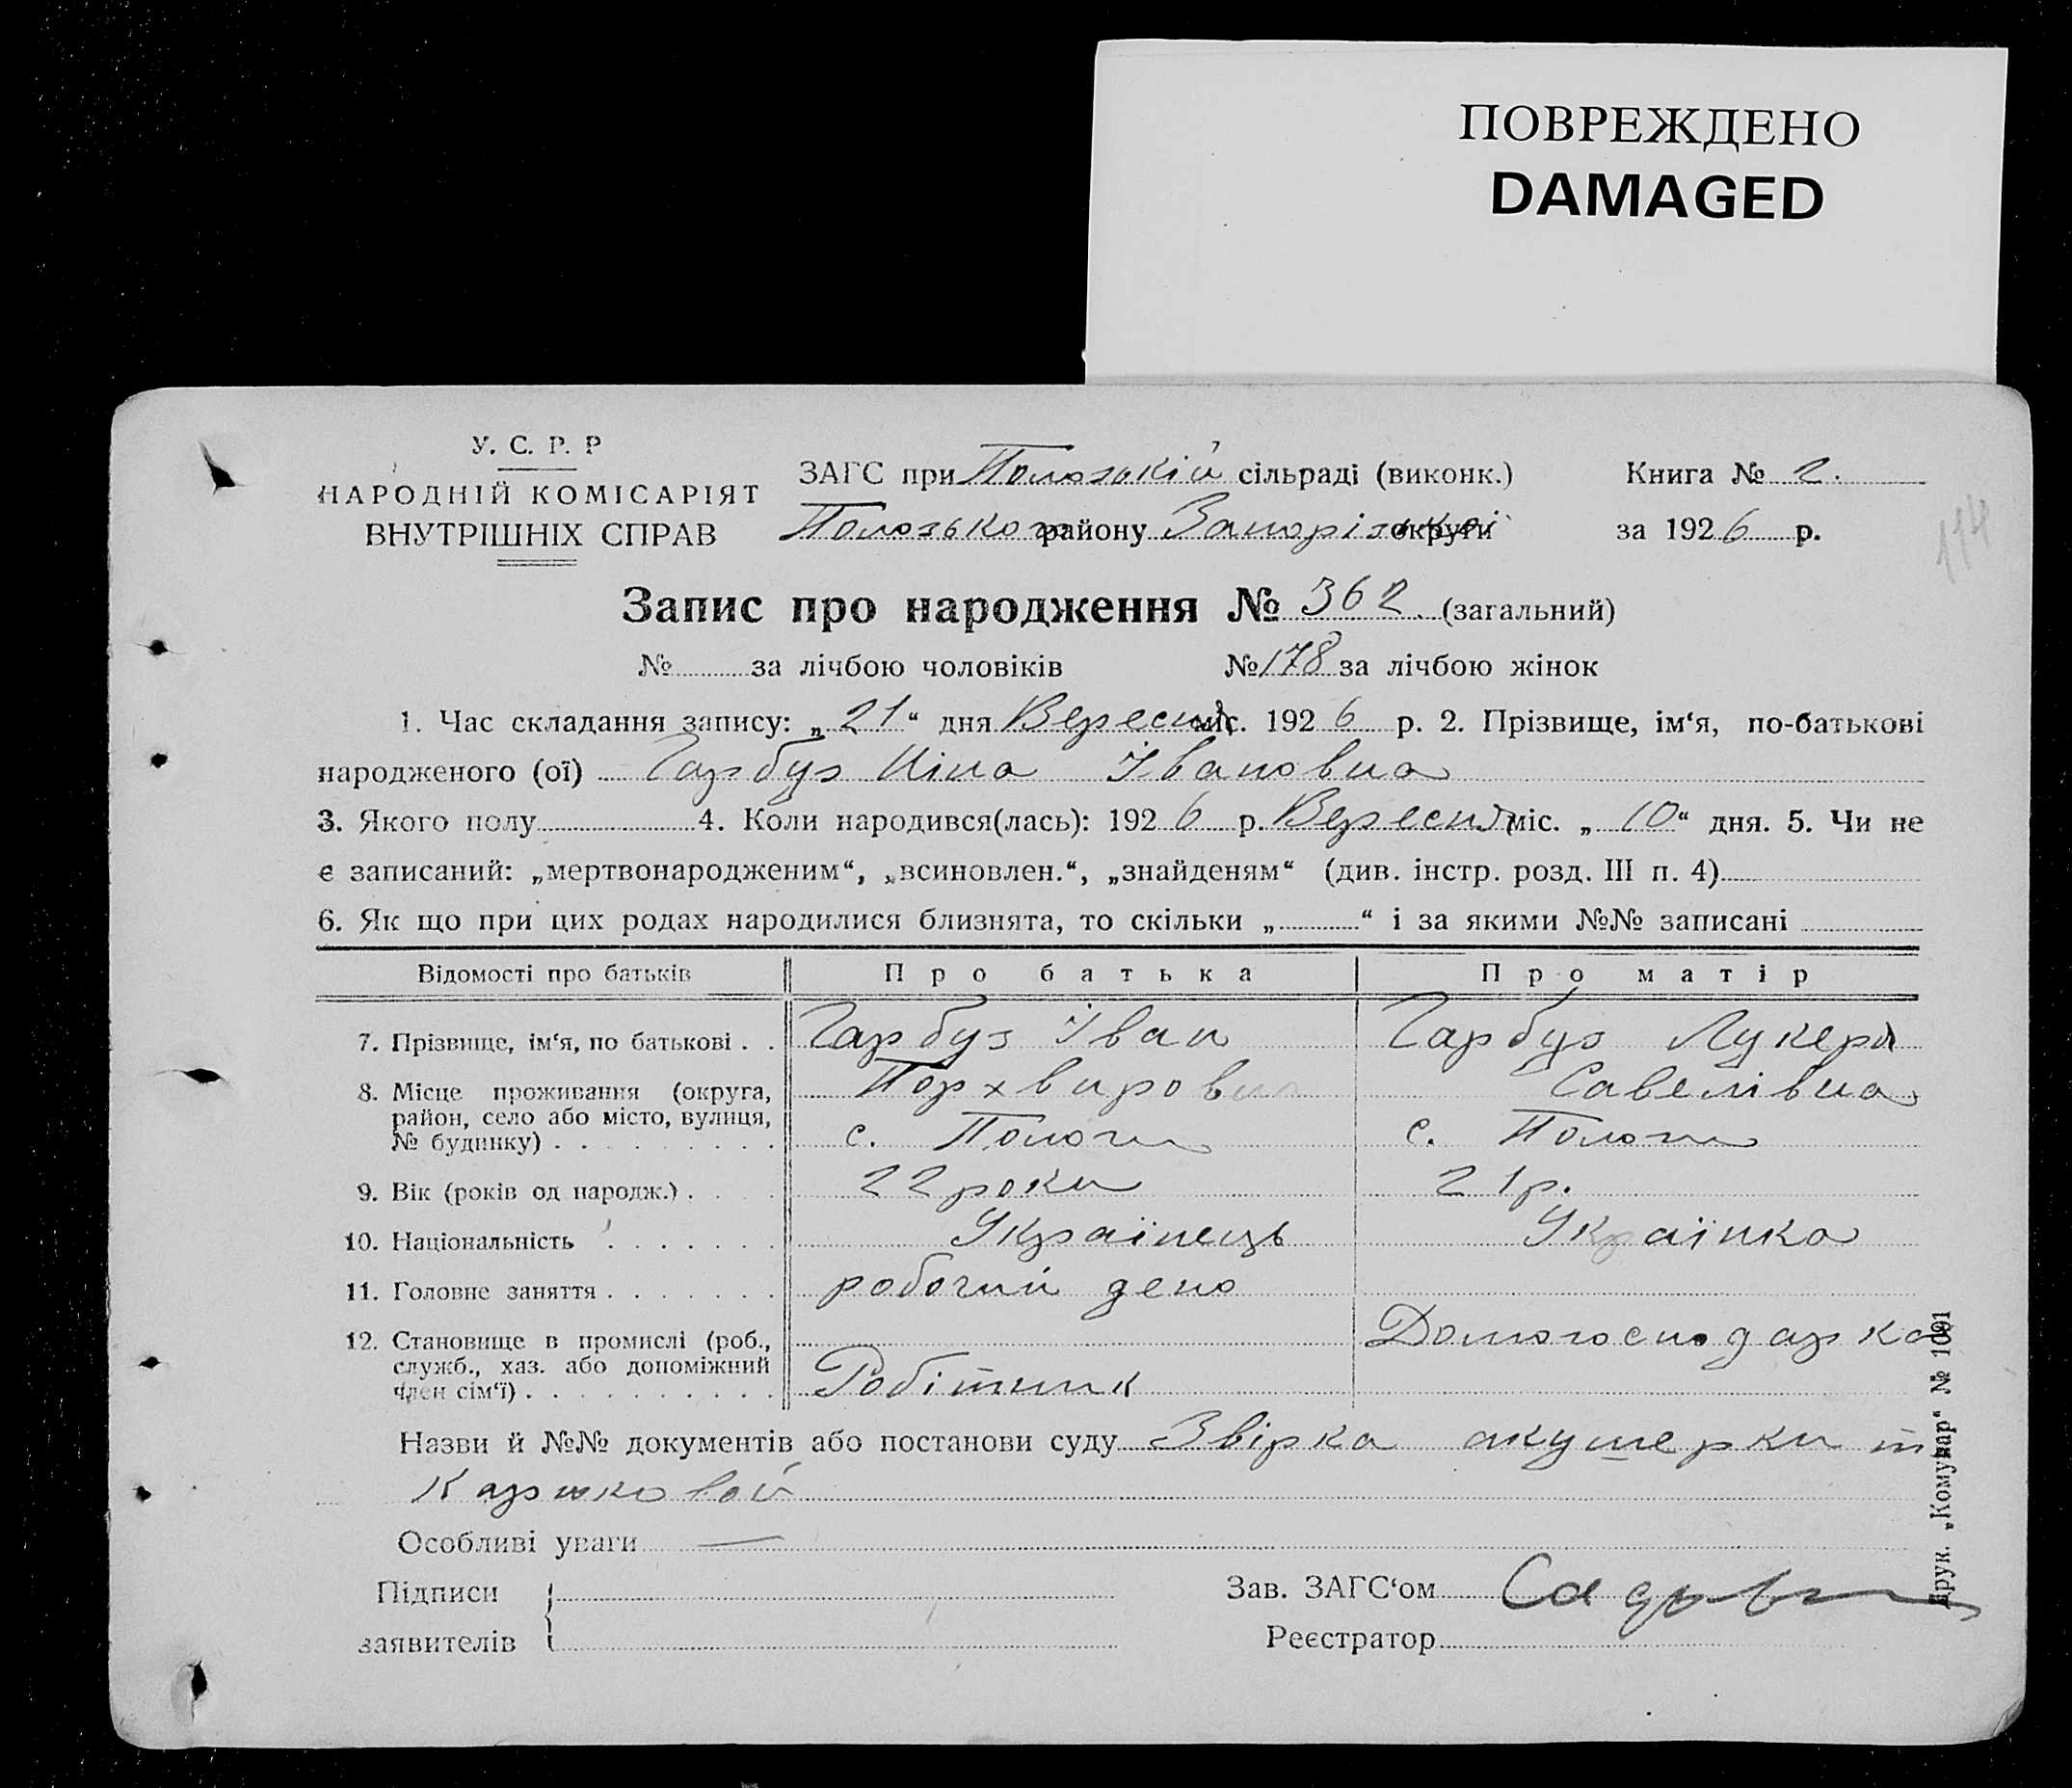 ПОВРЕЖДЕНО
DAMAGED
У. С. Р. Р
НАРОДНІЙ КОМІСАРІЯТ
ВНУТРІШНІХ СПРАВ
ЗАГС при Пологькій сільраді (виконк.)
Пологького району Запорізької округи
Книга № 2.
за 1926 р.
114
Запис про народження № 362 (загальний)
№ за лічбою чоловіків № 178 за лічбою жінок
1. Час складання запису: „21“ дня Вересня міс. 1926 р. 2. Прізвище, ім‘я, по-батькові
народженого (ої) Гарбуз Ніна Івановна
3. Якого полу 4. Коли народився(лась): 1926 р. Вересня міс. „10“ дня. 5. Чи не
є записаний: „мертвонародженим“, „всиновлен.“, „знайденям“ (див. інстр. розд. III п. 4)
6. Як що при цих родах народилися близнята, то скільки „ “ і за якими №№ записані
Відомості про батьків Про батька Про матір
7. Прізвище, ім‘я, по батькові . . Гарбуз Іван Гарбуз Лукеря
Порхвирович Савелівна
8. Місце проживання (округа, район, село або місто, вулиця, № будинку) с. Пологи с. Пологи
9. Вік (років од народж.) 22 роки 21 р.
10. Національність Українець Українка
11. Головне заняття робочий депо
12. Становище в промислі (роб., служб., хаз. або допоміжний член сім‘ї) Робітник Домогосподарка
Назви й №№ документів або постанови суду Звірка акушерки
Особливі уваги —
Підписи
заявителів
Зав. ЗАГС‘ом
Реєстратор
Друк. „Комунар“ № 1091